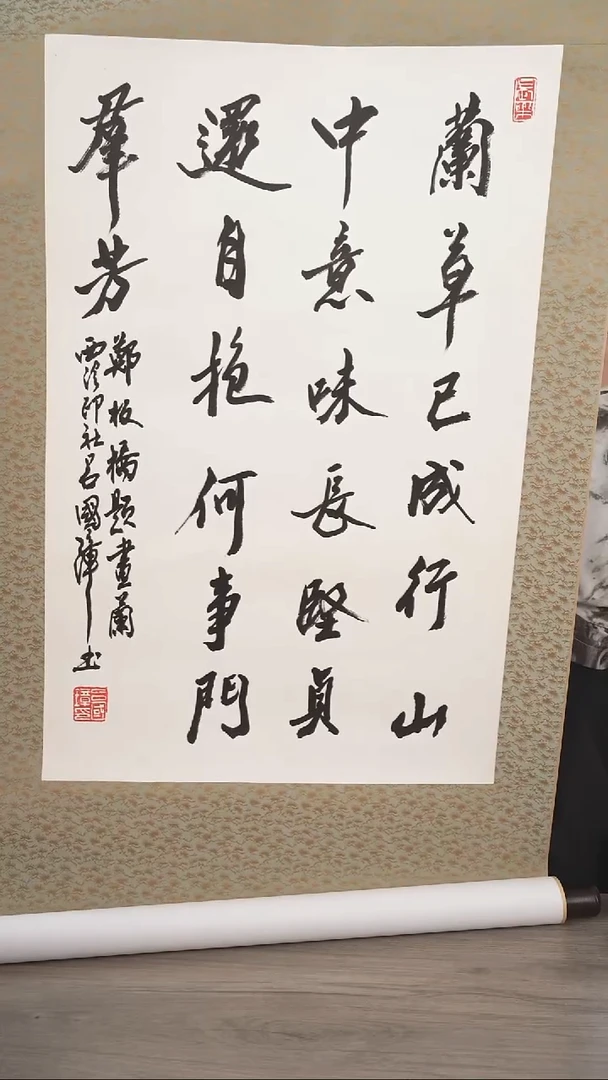 蘭草已成行山
中意味長堅貞
還自抱何事鬥
羣芳
鄭板橋題畫蘭
西泠印社呂國璋書